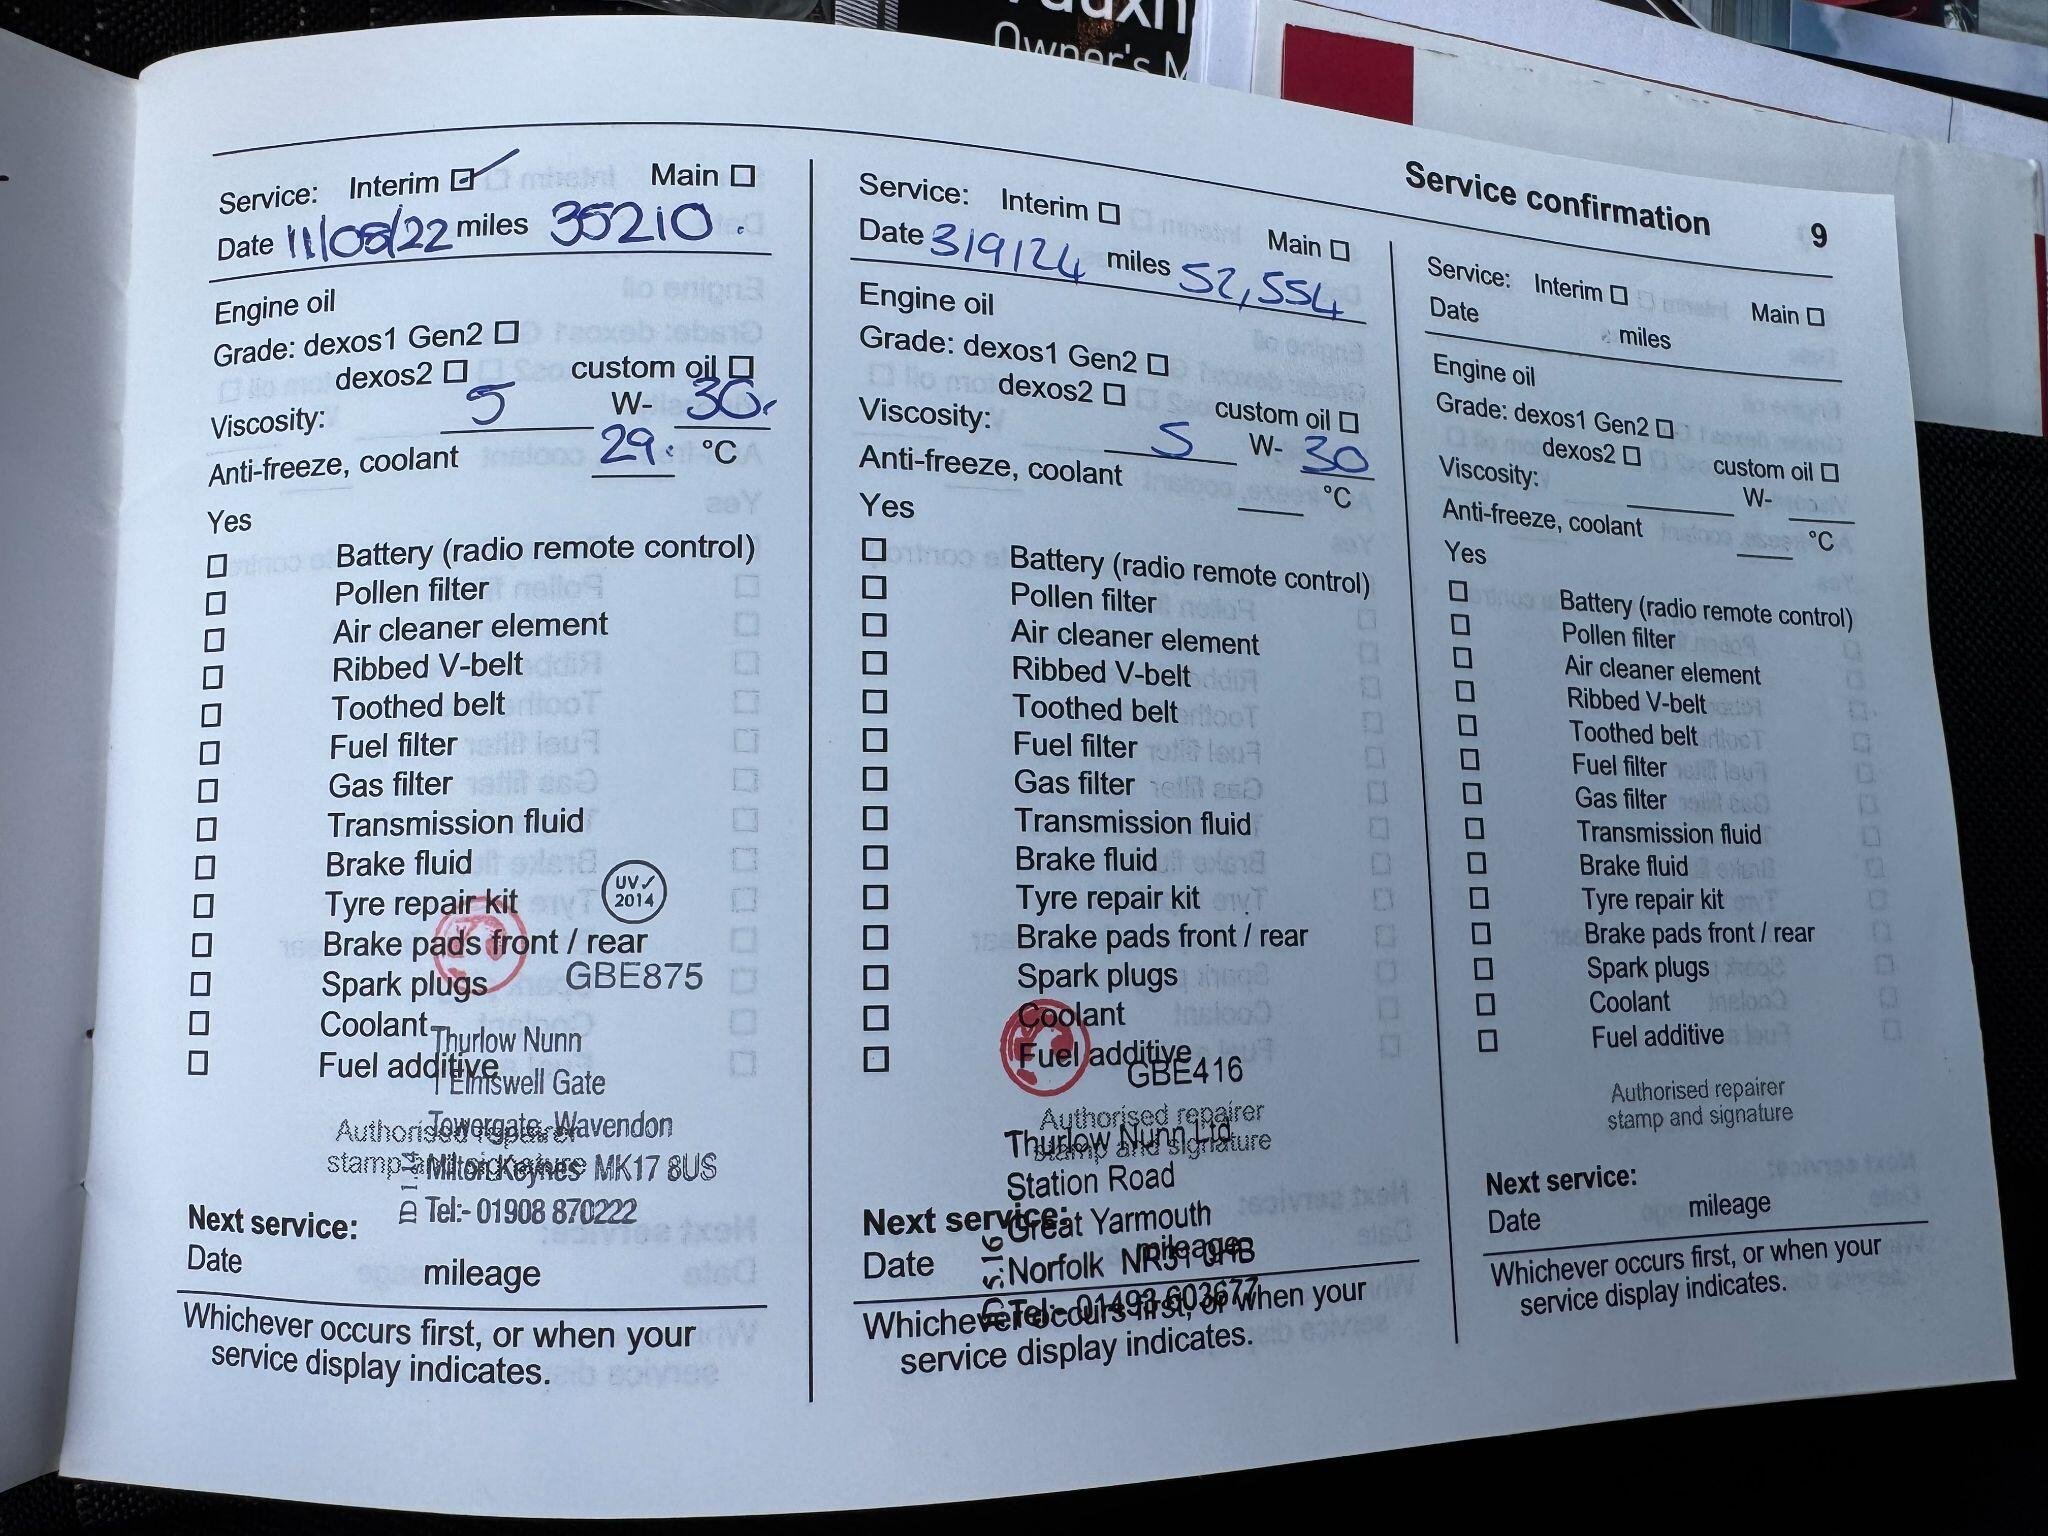 Owner's M
Service confirmation
9
Service: Interim ☑ Main ☐
Date 11/08/22 miles 35210.
Engine oil
Grade: dexos1 Gen2 ☐
dexos2 ☐ custom oil ☐
Viscosity: 5 W- 30.
Anti-freeze, coolant 29. °C
Yes
☐ Battery (radio remote control)
☐ Pollen filter
☐ Air cleaner element
☐ Ribbed V-belt
☐ Toothed belt
☐ Fuel filter
☐ Gas filter
☐ Transmission fluid
☐ Brake fluid
☐ Tyre repair kit
UV✓
2014
☐ Brake pads front / rear
☐ Spark plugs
GBE875
☐ Coolant
☐ Fuel additive
Thurlow Nunn
1 Elmswell Gate
Towergate, Wavendon
Milton Keynes MK17 8US
Tel:- 01908 870222
Authorised repairer
stamp and signature
Next service:
Date mileage
Whichever occurs first, or when your
service display indicates.
Service: Interim ☐ Main ☐
Date 3/9/24 miles 52,554
Engine oil
Grade: dexos1 Gen2 ☐
dexos2 ☐ custom oil ☐
Viscosity: 5 W- 30
Anti-freeze, coolant °C
Yes
☐ Battery (radio remote control)
☐ Pollen filter
☐ Air cleaner element
☐ Ribbed V-belt
☐ Toothed belt
☐ Fuel filter
☐ Gas filter
☐ Transmission fluid
☐ Brake fluid
☐ Tyre repair kit
☐ Brake pads front / rear
☐ Spark plugs
☐ Coolant
☐ Fuel additive
GBE416
Authorised repairer
stamp and signature
Thurlow Nunn Ltd
Station Road
Great Yarmouth
Norfolk NR31 0HB
Tel:- 01493 603677
Next service:
Date mileage
Whichever occurs first, or when your
service display indicates.
Service: Interim ☐ Main ☐
Date miles
Engine oil
Grade: dexos1 Gen2 ☐
dexos2 ☐ custom oil ☐
Viscosity: W-
Anti-freeze, coolant °C
Yes
☐ Battery (radio remote control)
☐ Pollen filter
☐ Air cleaner element
☐ Ribbed V-belt
☐ Toothed belt
☐ Fuel filter
☐ Gas filter
☐ Transmission fluid
☐ Brake fluid
☐ Tyre repair kit
☐ Brake pads front / rear
☐ Spark plugs
☐ Coolant
☐ Fuel additive
Authorised repairer
stamp and signature
Next service:
Date mileage
Whichever occurs first, or when your
service display indicates.